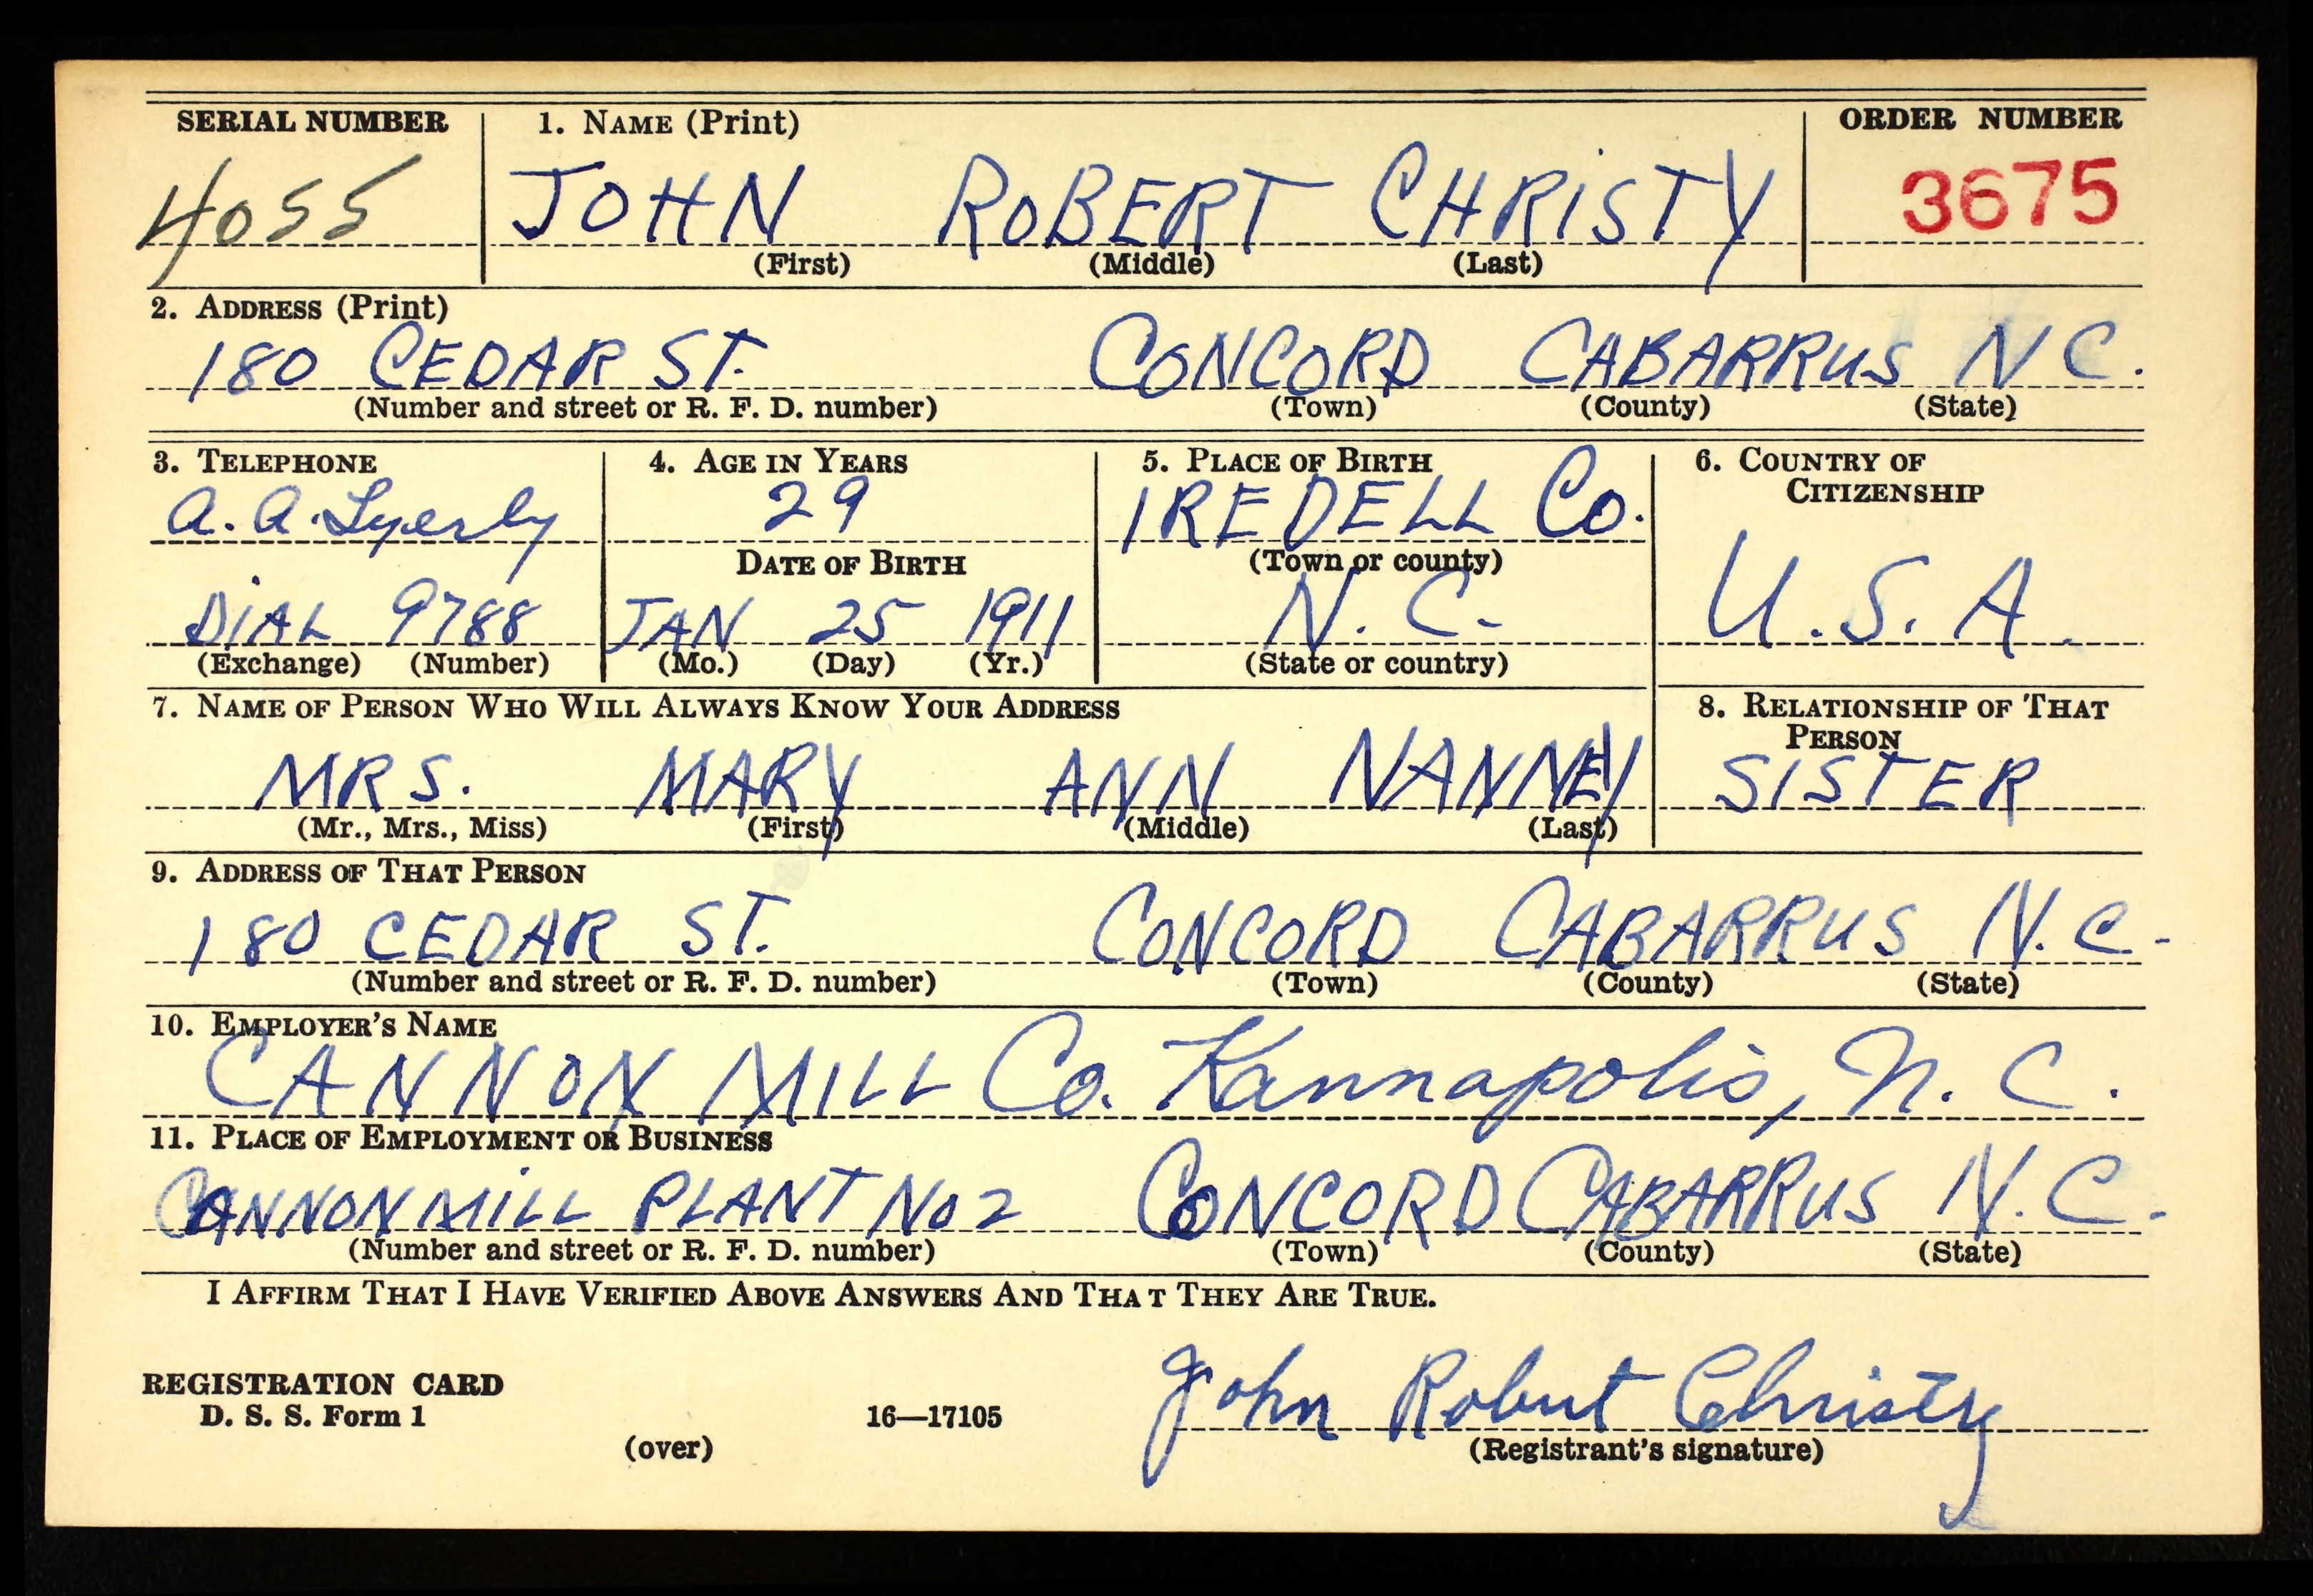 SERIAL NUMBER 1. NAME (Print) ORDER NUMBER
4055 JOHN ROBERT CHRISTY 3675
(First) (Middle) (Last)
2. ADDRESS (Print)
180 CEDAR ST. CONCORD CABARRUS N C.
(Number and street or R. F. D. number) (Town) (County) (State)
3. TELEPHONE 4. AGE IN YEARS 5. PLACE OF BIRTH 6. COUNTRY OF CITIZENSHIP
A. A. Lyerly 29 IREDELL Co.
DATE OF BIRTH (Town or county)
DIAL 9788 JAN 25 1911 N. C. U. S. A.
(Exchange) (Number) (Mo.) (Day) (Yr.) (State or country)
7. NAME OF PERSON WHO WILL ALWAYS KNOW YOUR ADDRESS 8. RELATIONSHIP OF THAT PERSON
MRS. MARY ANN NANNEY SISTER
(Mr., Mrs., Miss) (First) (Middle) (Last)
9. ADDRESS OF THAT PERSON
180 CEDAR ST. CONCORD CABARRUS N. C.
(Number and street or R. F. D. number) (Town) (County) (State)
10. EMPLOYER'S NAME
CANNON MILL Co. Kannapolis, N. C.
11. PLACE OF EMPLOYMENT OR BUSINESS
CANNON MILL PLANT No 2 CONCORD CABARRUS N. C.
(Number and street or R. F. D. number) (Town) (County) (State)
I AFFIRM THAT I HAVE VERIFIED ABOVE ANSWERS AND THAT THEY ARE TRUE.
John Robert Christy
REGISTRATION CARD
D. S. S. Form 1 16—17105
(over) (Registrant's signature)